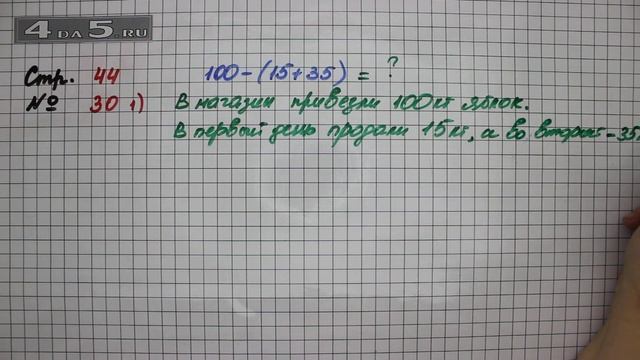 4 DA 5.RU
Стр. 44 100-(15+35) = ?
№ 30 1) В магазин привезли 100 кг яблок.
В первый день продали 15кг, а во второй - 35к